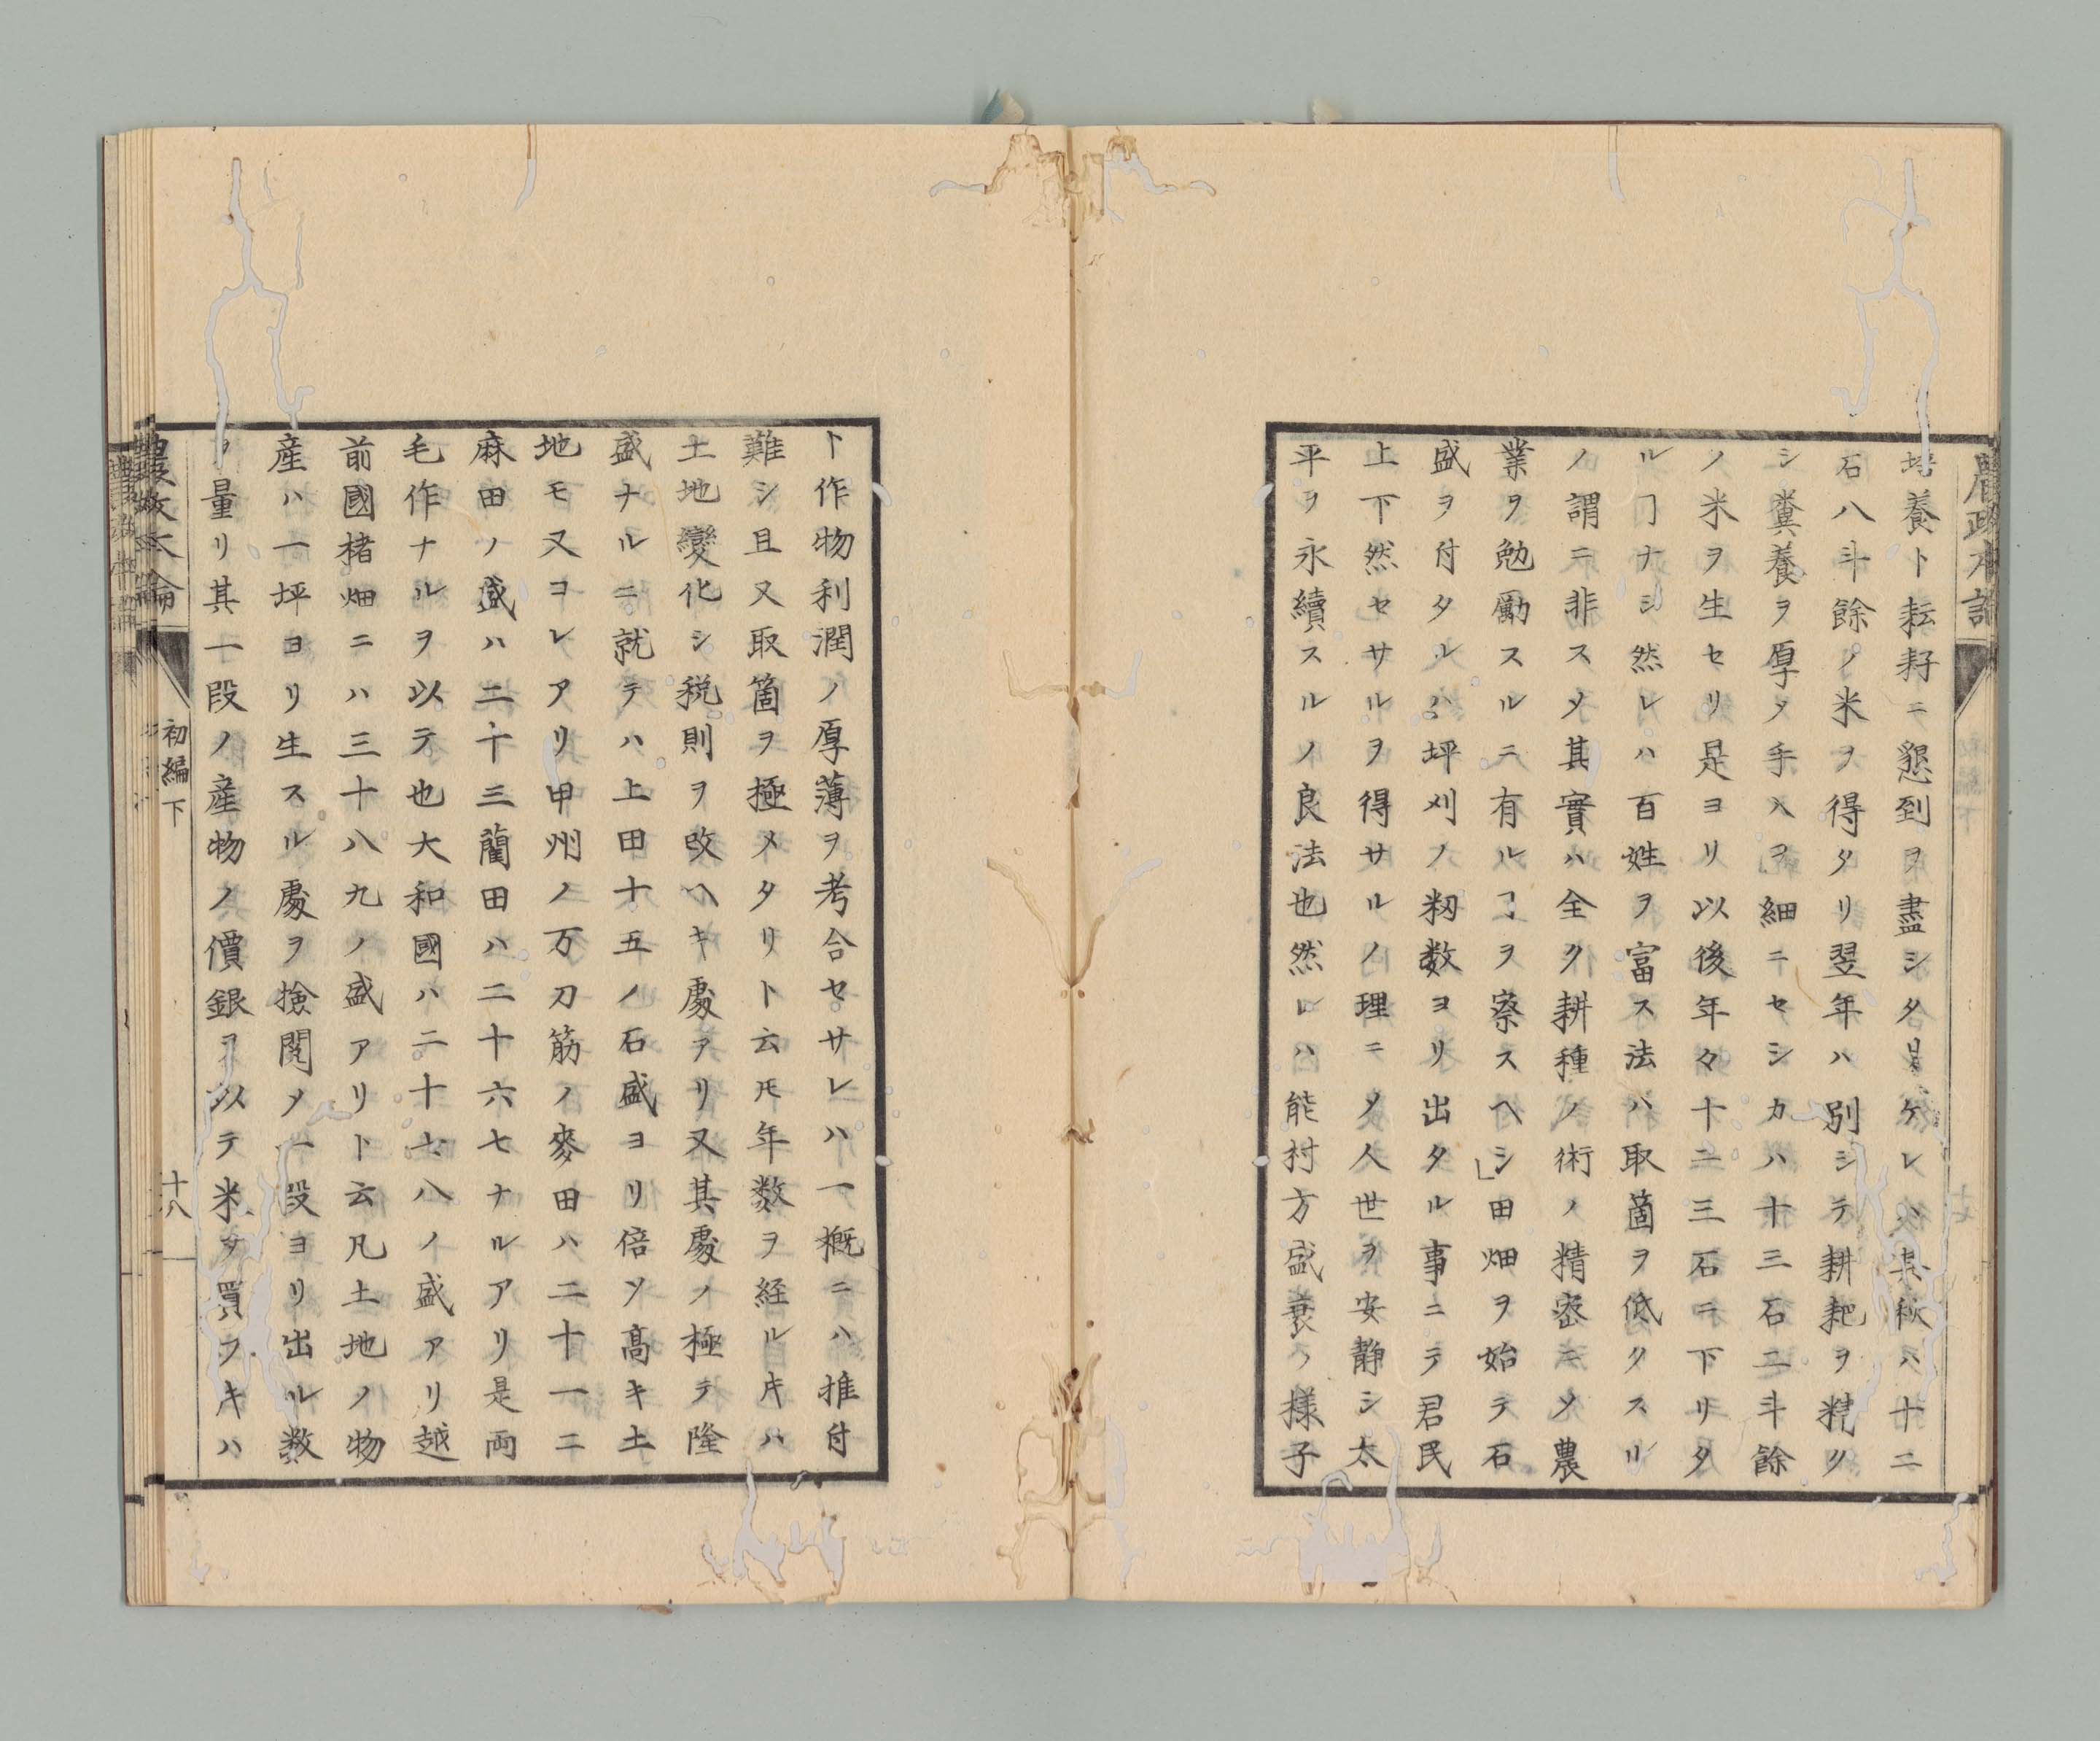 農政本論
培養ト耘耔ニ懇到ヲ盡シタ
ケレハ其秋ハ十二
石八斗餘ノ米ヲ得タリ翌年ハ別シテ耕耙ヲ精ク
シ糞養ヲ厚ク手入ヲ細ニセシカハ十三石二斗餘
ノ米ヲ生セリ是ヨリ以後年々十二三石ニ下リタ
ルヿナシ然レハ百姓ヲ富ス法ハ取箇ヲ低クスル
ノ謂ニ非スメ其實ハ全ク耕種ノ術ノ精密ニメ農
業ヲ勉勵スルニ有ルヿヲ察スヘシ」田畑ヲ始テ石
盛ヲ付タルハ坪刈ノ籾数ヨリ出タル事ニテ君民
上下然セサルヲ得サルノ理ニメ人世ヲ安静シ太
平ヲ永續スルノ良法也然レハ能村方盛衰ノ様子
ト作物利潤ノ厚薄ヲ考合セサレハ一概ニハ推付
難シ且又取箇ヲ極メタリト云𪜈年数ヲ経ルキハ
土地變化シ税則ヲ改ヘキ處アリ又其處ノ極テ隆
盛ナルニ就テハ上田十五ノ石盛ヨリ倍ソ高キ土
地モ又コレアリ甲州ノ万刀筋ノ麥田ハ二十一二
麻田ノ盛ハ二十三藺田ハ二十六七ナルアリ是両
毛作ナルヲ以テ也大和國ハ二十七八ノ盛アリ越
前國楮畑ニハ三十八九ノ盛アリト云凡土地ノ物
産ハ一坪ヨリ生スル處ヲ撿閲メ一段ヨリ出ル数
ヲ量リ其一段ノ産物ノ價銀ヲ以テ米ヲ買フキハ
農政本論
初編下
十八